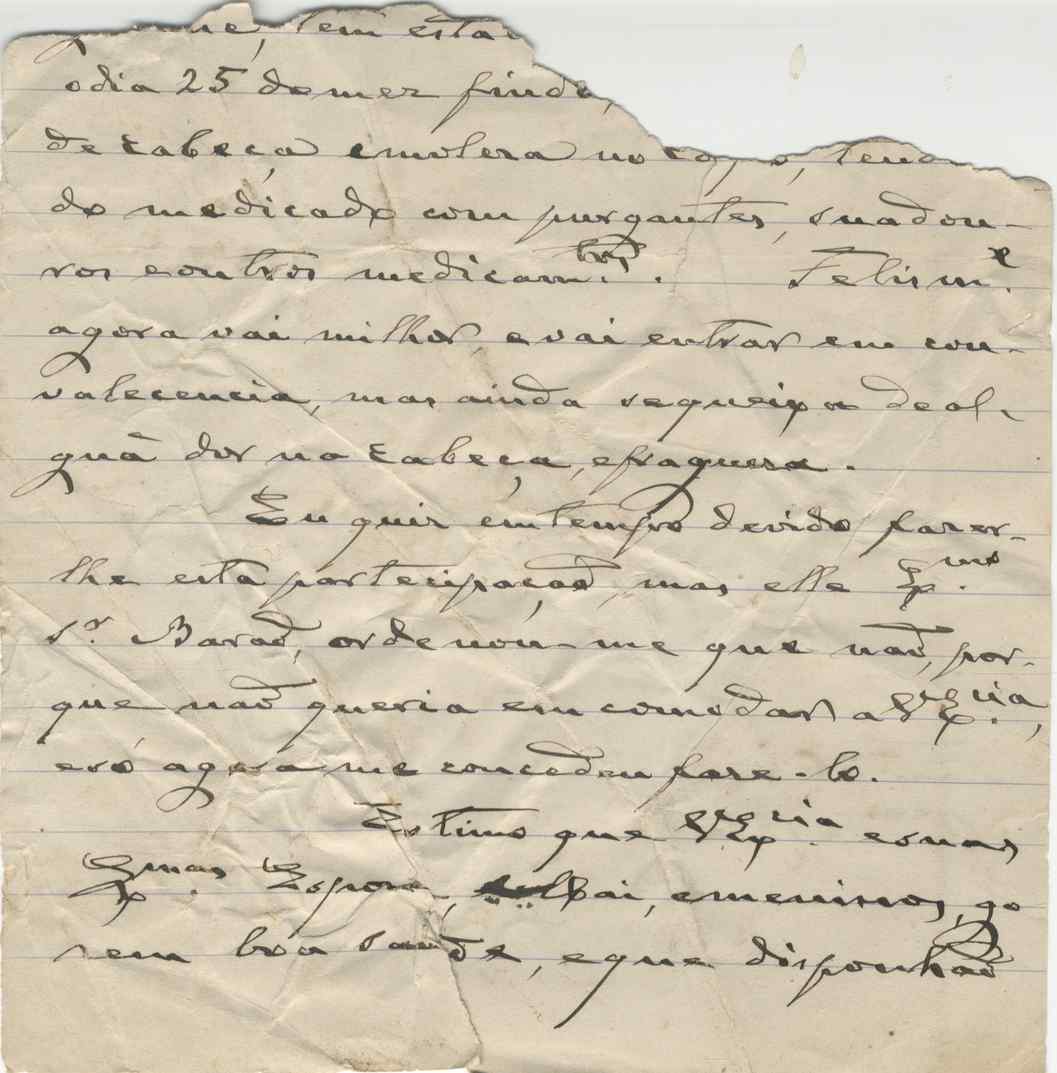 tem esta
o dia 25 do mez findo,
de cabeça e molera no co o, tend
do medicado com purgantes, suadou-
ros e outros medicam.tos. Felism.e
agora vai milhor, e vai entrar em con-
valecencia, mas ainda se queixa de al-
guã dor na cabeça, e fraquesa.
Eu quis em tempo devido fazer-
lhe esta partecipação, mas elle Ex.mo
S.r Barão, ordenou-me que não, por-
que não queria emcomodar a V.Ex.cia,
e só agora me concedeu faze-lo.
Estimo que V.Ex.cia e suas
Ex.mas Espoza, Pai, e meninos, go
sem boa saude, e que disponhão